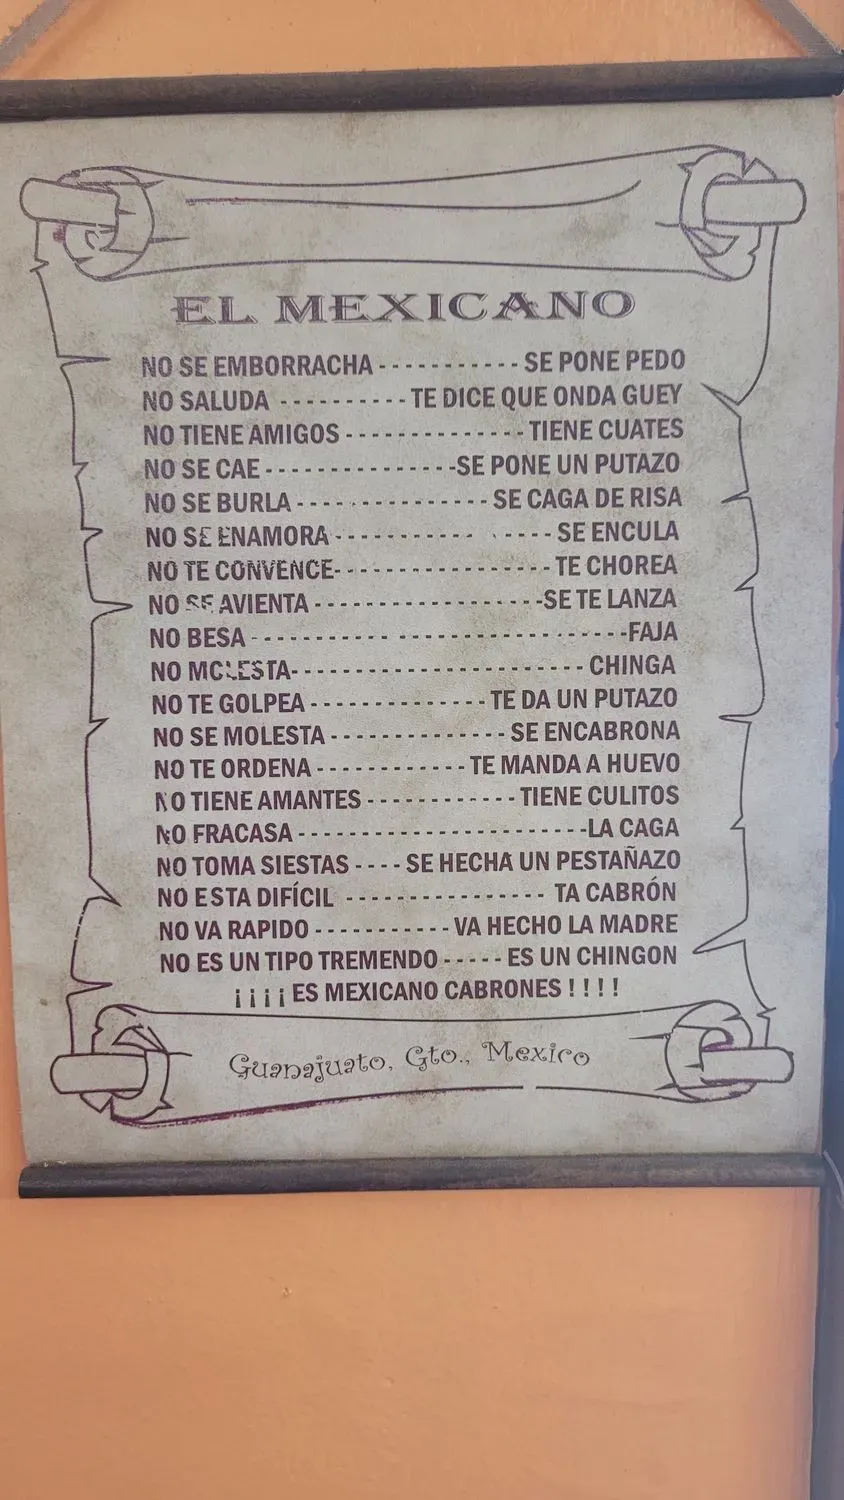 EL MEXICANO
NO SE EMBORRACHA - - - - - - - - - - - SE PONE PEDO
NO SALUDA - - - - - - - - - - TE DICE QUE ONDA GUEY
NO TIENE AMIGOS - - - - - - - - - - - - - - TIENE CUATES
NO SE CAE - - - - - - - - - - - - - - - -SE PONE UN PUTAZO
NO SE BURLA - - - - - - - - - - - - - - - - SE CAGA DE RISA
NO SE ENAMORA - - - - - - - - - - - - - - - - - SE ENCULA
NO TE CONVENCE- - - - - - - - - - - - - - - - - - TE CHOREA
NO SE AVIENTA - - - - - - - - - - - - - - - - - -SE TE LANZA
NO BESA - - - - - - - - - - - - - - - - - - - - - - - - - - - -FAJA
NO MOLESTA- - - - - - - - - - - - - - - - - - - - - - - - CHINGA
NO TE GOLPEA - - - - - - - - - - - - - - TE DA UN PUTAZO
NO SE MOLESTA - - - - - - - - - - - - - - SE ENCABRONA
NO TE ORDENA - - - - - - - - - - - - TE MANDA A HUEVO
NO TIENE AMANTES - - - - - - - - - - - - TIENE CULITOS
NO FRACASA - - - - - - - - - - - - - - - - - - - - - - -LA CAGA
NO TOMA SIESTAS - - - - SE HECHA UN PESTAÑAZO
NO ESTA DIFÍCIL - - - - - - - - - - - - - - - - TA CABRÓN
NO VA RAPIDO - - - - - - - - - - - VA HECHO LA MADRE
NO ES UN TIPO TREMENDO - - - - - ES UN CHINGON
¡¡¡¡ES MEXICANO CABRONES ! ! ! !
Guanajuato, Gto., Mexico